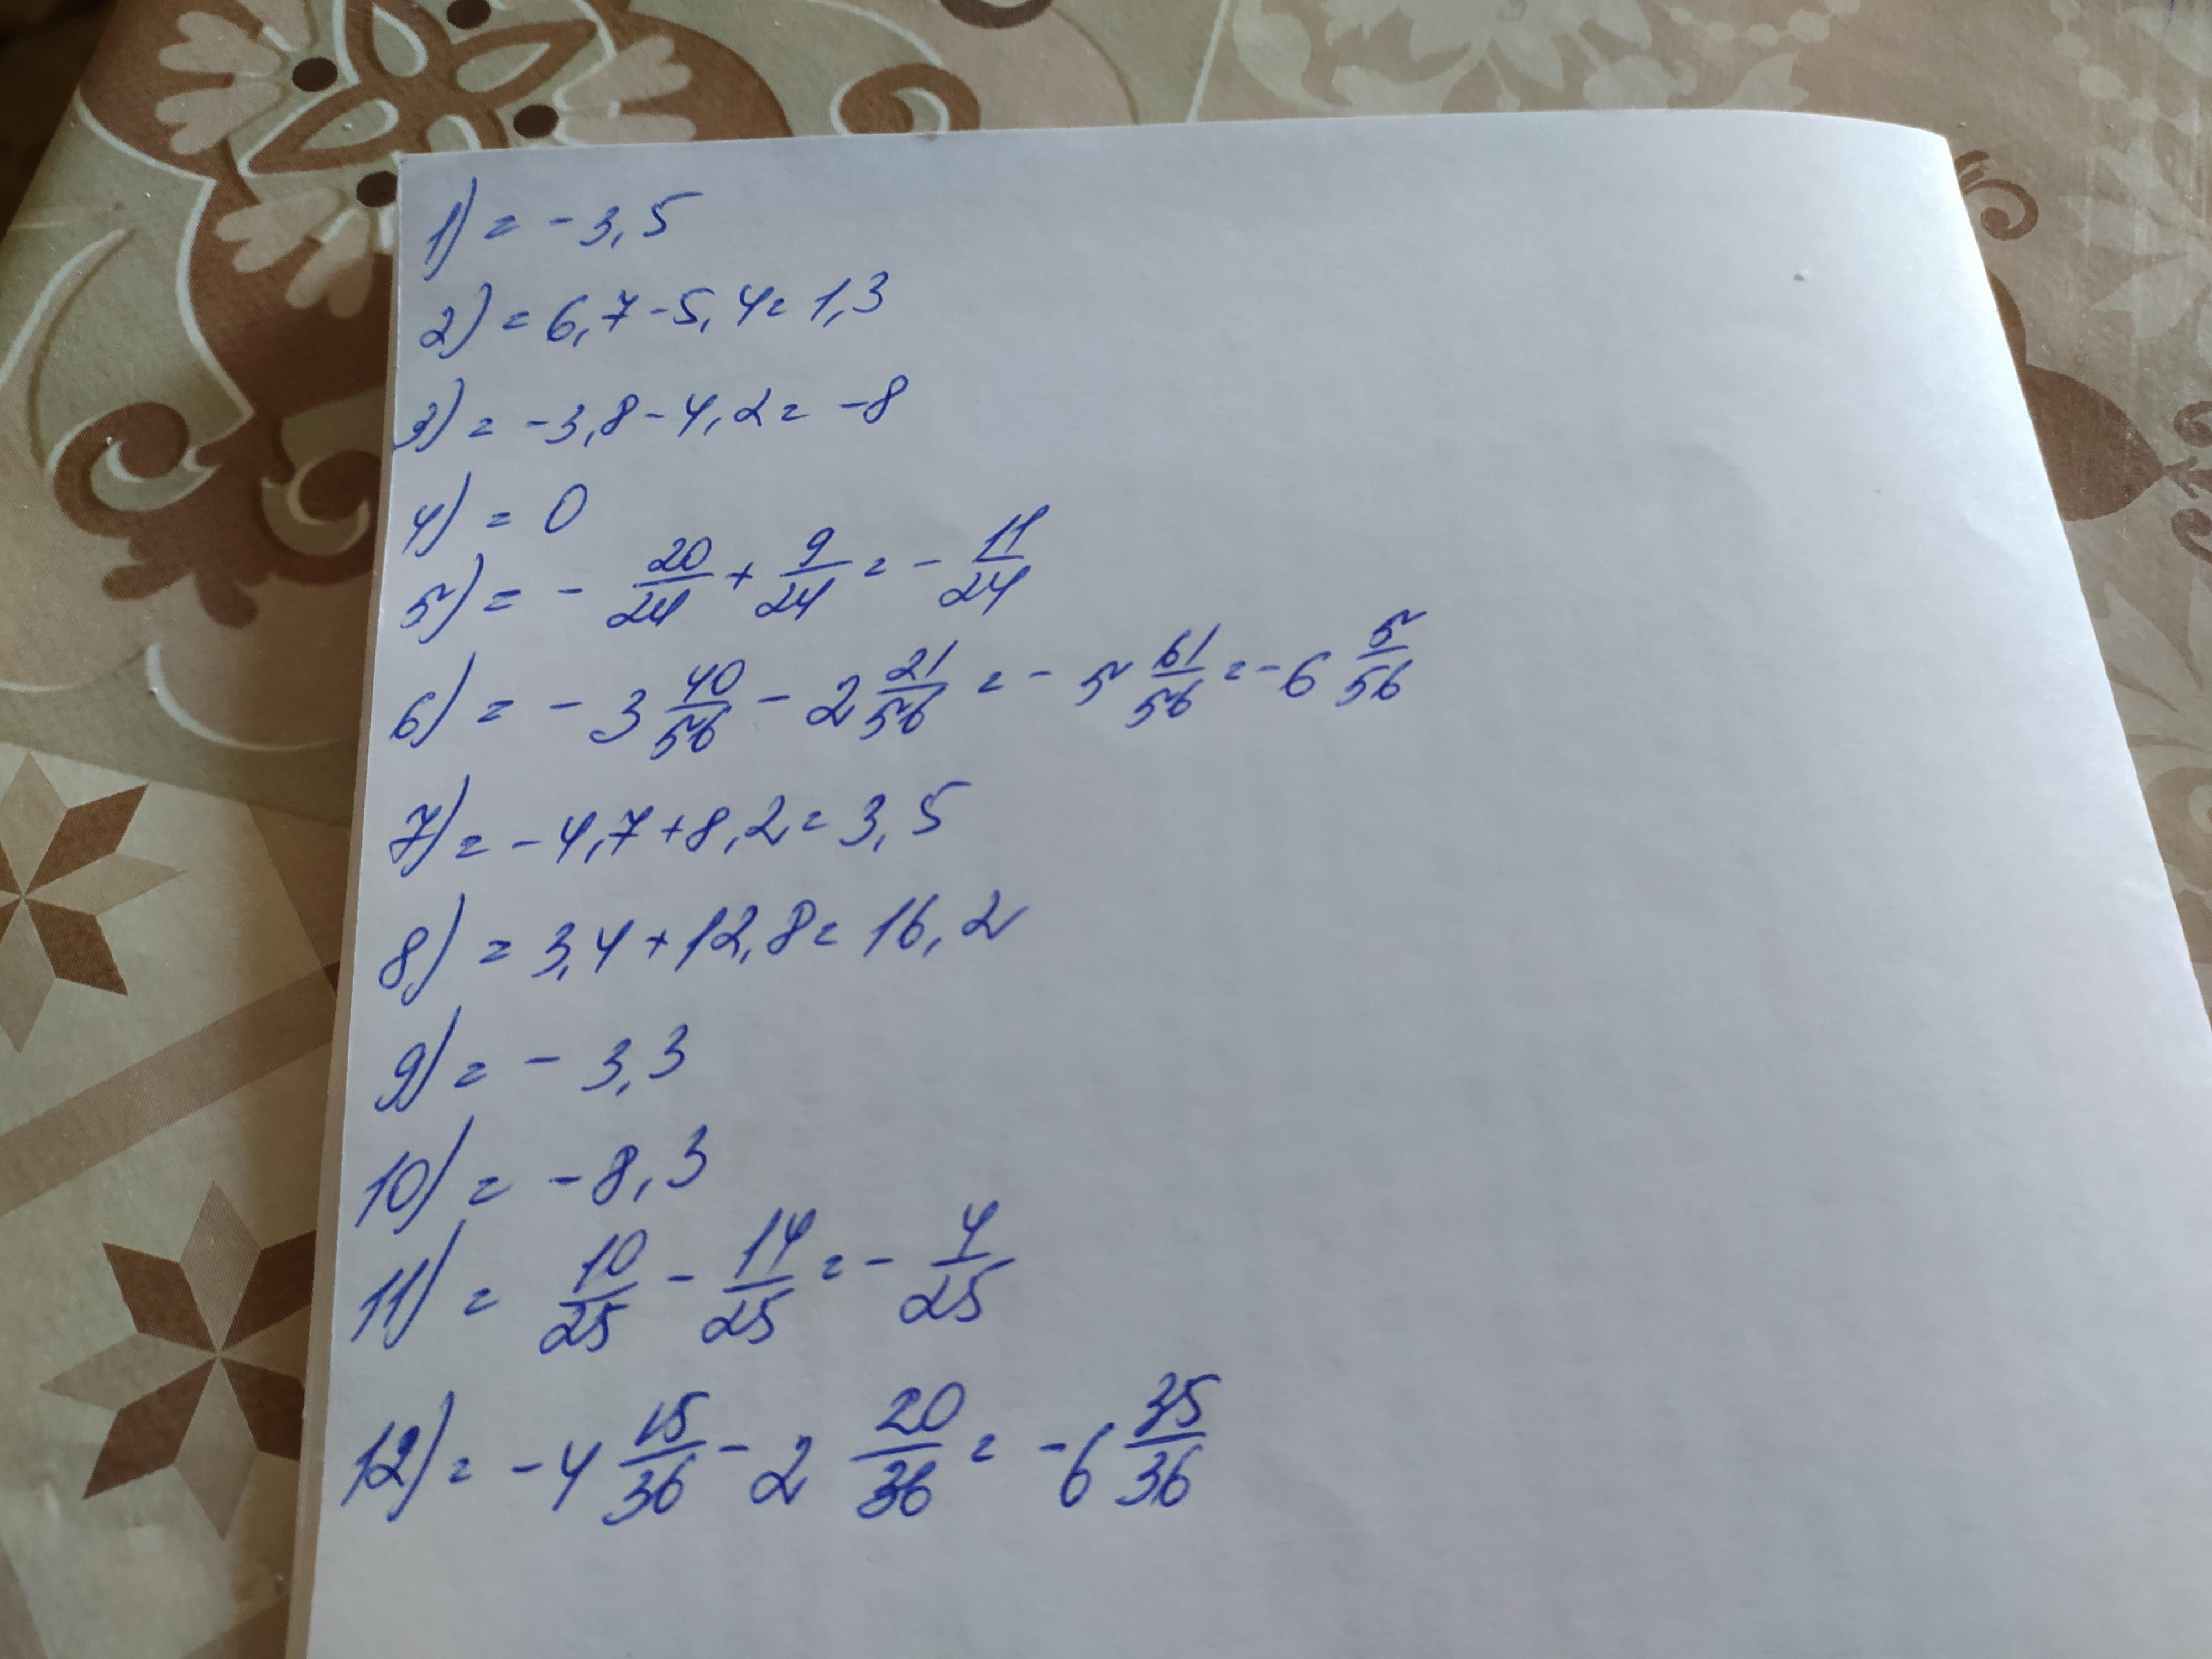 1) = -3,5
2) = 6,7 - 5,4 = 1,3
3) = -3,8 - 4,2 = -8
4) = 0
5) = - 20/24 + 9/24 = - 11/24
6) = - 3 40/56 - 2 21/56 = - 5 61/56 = - 6 5/56
7) = - 4,7 + 8,2 = 3,5
8) = 3,4 + 12,8 = 16,2
9) = - 3,3
10) = - 8,3
11) = 10/25 - 14/25 = - 4/25
12) = - 4 15/36 - 2 20/36 = - 6 35/36